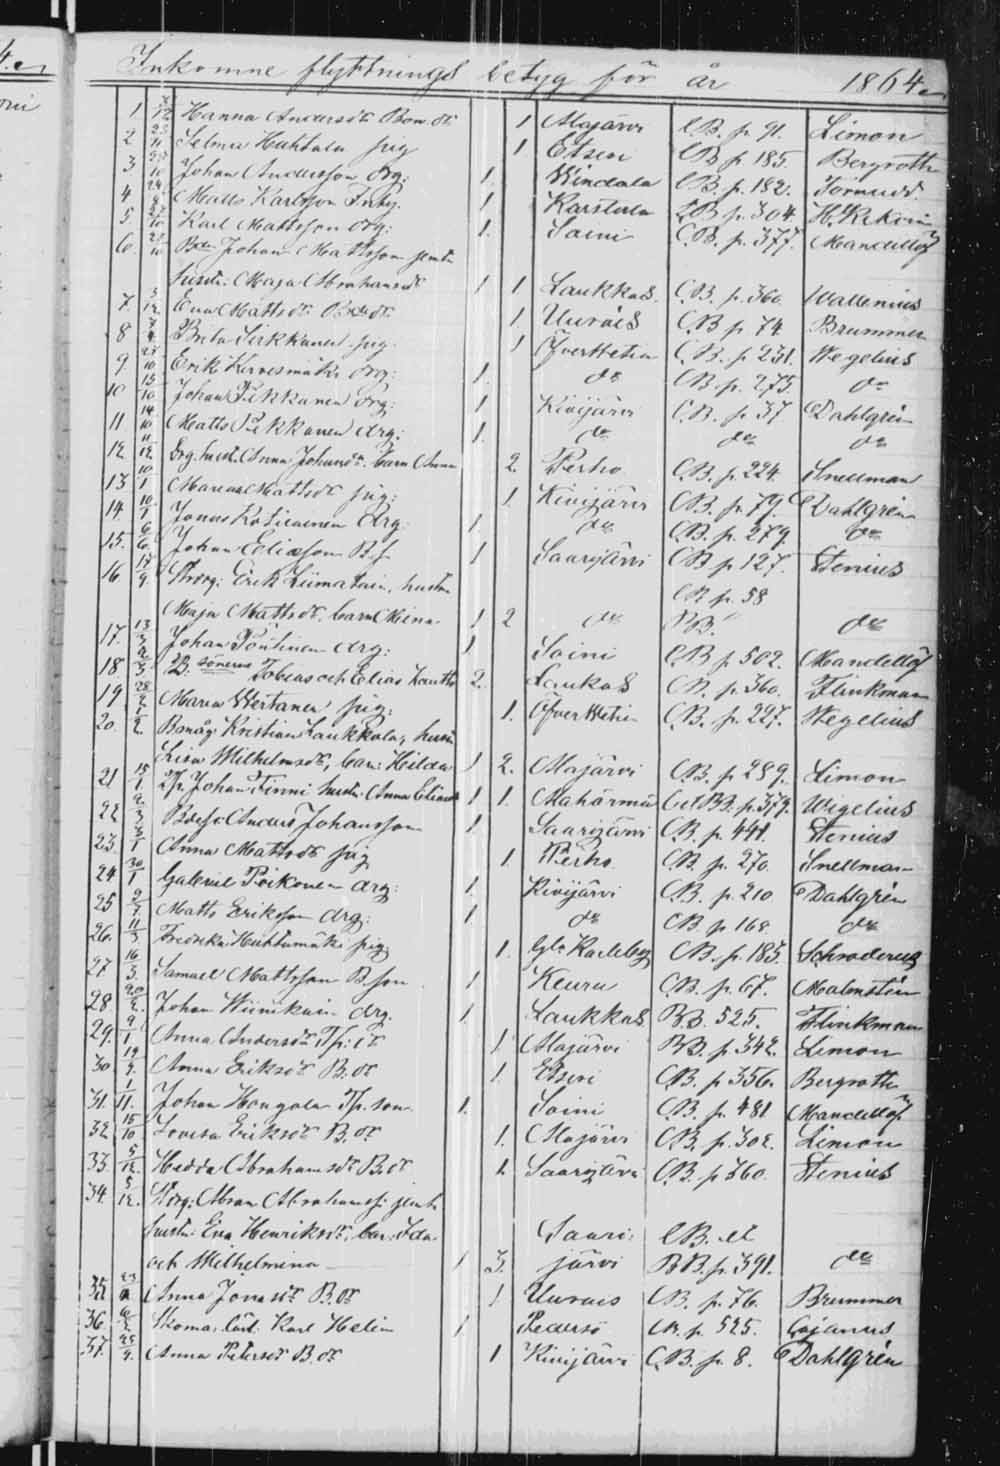 Inkomne flyttnings betyg för år 1864.
1 Hanna Andersdr Bom. dr 1 Alajärvi CB. p. 91. Limon
2 Selma Huhtala pig 1 Etseri CB p. 185. Bergroth
3 Johan Andersson drg: 1 Windala CB. p. 182. Törnudd
4 Matts Karlsson Inhy. 1 Karstula CB p. 304.
5 Karl Mattsson drg: 1. Soini CB. p. 377. Mandellöf
6. Bdn Johan Mattsson jemte
hustr. Maja Abrahamsdr 1 1 Laukkas. CB. p. 360. Wallenius
7. Eva Mattsdr 1 Uurais CB p 74 Brummer
8 Brita Sirkkanen pig. 1 Öfvervetin CB. p. 231. Wegelius
9. Erik Kervesmäki drg: 1. do CB p. 275. do
10 Johan Pikkanen drg: 1. Kivijärvi CB. p. 37 Dahlgrén
11 Matts Pikkanen drg: 1. do do do
12. Drg. hustr. Anna Johansdr. barn Anna 2 Perho CB. p. 224. Snellman
13 Maria Mattsdr pig: 1 Kivijärvi CB. p. 79. Dahlgrén
14. Jonas Kotilainen drg. 1 do CB. p. 279. do
15. Johan Eliasson B.s. 1 Saarijärvi CB p 127. Stenius
16. Erik Liimatain, hustru CB p. 58
Maja Mattsdr, barn Miina 1 2 do BB. do
17. Johan Pöntinen drg: 1 Soini CB p 502. Mandellöf
18. B. sönerne Tobias och Elias Kautto 2. Laukas CB. p. 360. Flinkman
19 Maria Wertanen pig: 1. Öfvervetin CB. p. 227. Wegelius
20. Bomåg Kristian Laukkala, hustr
Lisa Wilhelmsdr, barn: Hilda 1 2. Alajärvi CB. p 289. Limon
21 Tp. Johan Finni hustr. Anna Eliasdr 1 1. Alahärmä CB et BB. p. 379. Wigelius
22 Anders Johansson 1. Saarijärvi CB. p. 441. Stenius
23. Anna Mattsdr pig 1. Perho CB. p. 270. Snellman
24 Gabriel Poikonen drg: 1. Kivijärvi CB. p. 210 Dahlgrén
25 Matts Eriksson drg: 1. do CB. p 168. do
26. Fredrika Huhtamäki pig. 1. Gla Karleby CB. p. 185. Schroderus
27 Samuel Mattsson B.son 1 Keuru CB. p. 67. Malmstén
28. Johan Wiinikain drg. 1. Laukkas BB. 525. Flinkman
29. Anna Andersdr Tp: dr 1 Alajärvi BB. p. 342. Limon
30 Anna Eriksdr B. dr 1. Etseri CB. p 356. Bergroth
31. Johan Hangala Tp. son 1. Soini CB. p. 481 Mandellöf
32 Lovisa Eriksdr B. dr 1. Alajärvi CB. p. 302. Limon
33. Hedda Abrahamsdr B. dr 1. Saarijärvi CB. p 360. Stenius
34. Abram Abrahamss. jemte
hustr. Eva Henriksdr, bar: Ida Saari= CB. et
och Wilhelmina 1 3. järvi BB. p. 391. do
35. Anna Jonasdr B. dr 1 Uurais CB. p. 76. Brummer
36. Skoma. lärl. Karl Helin 1 Pedersö CB. p. 525. Cajanus
37. Anna Petersdr B. dr 1 Kivijärvi CB. p. 8. Dahlgrén